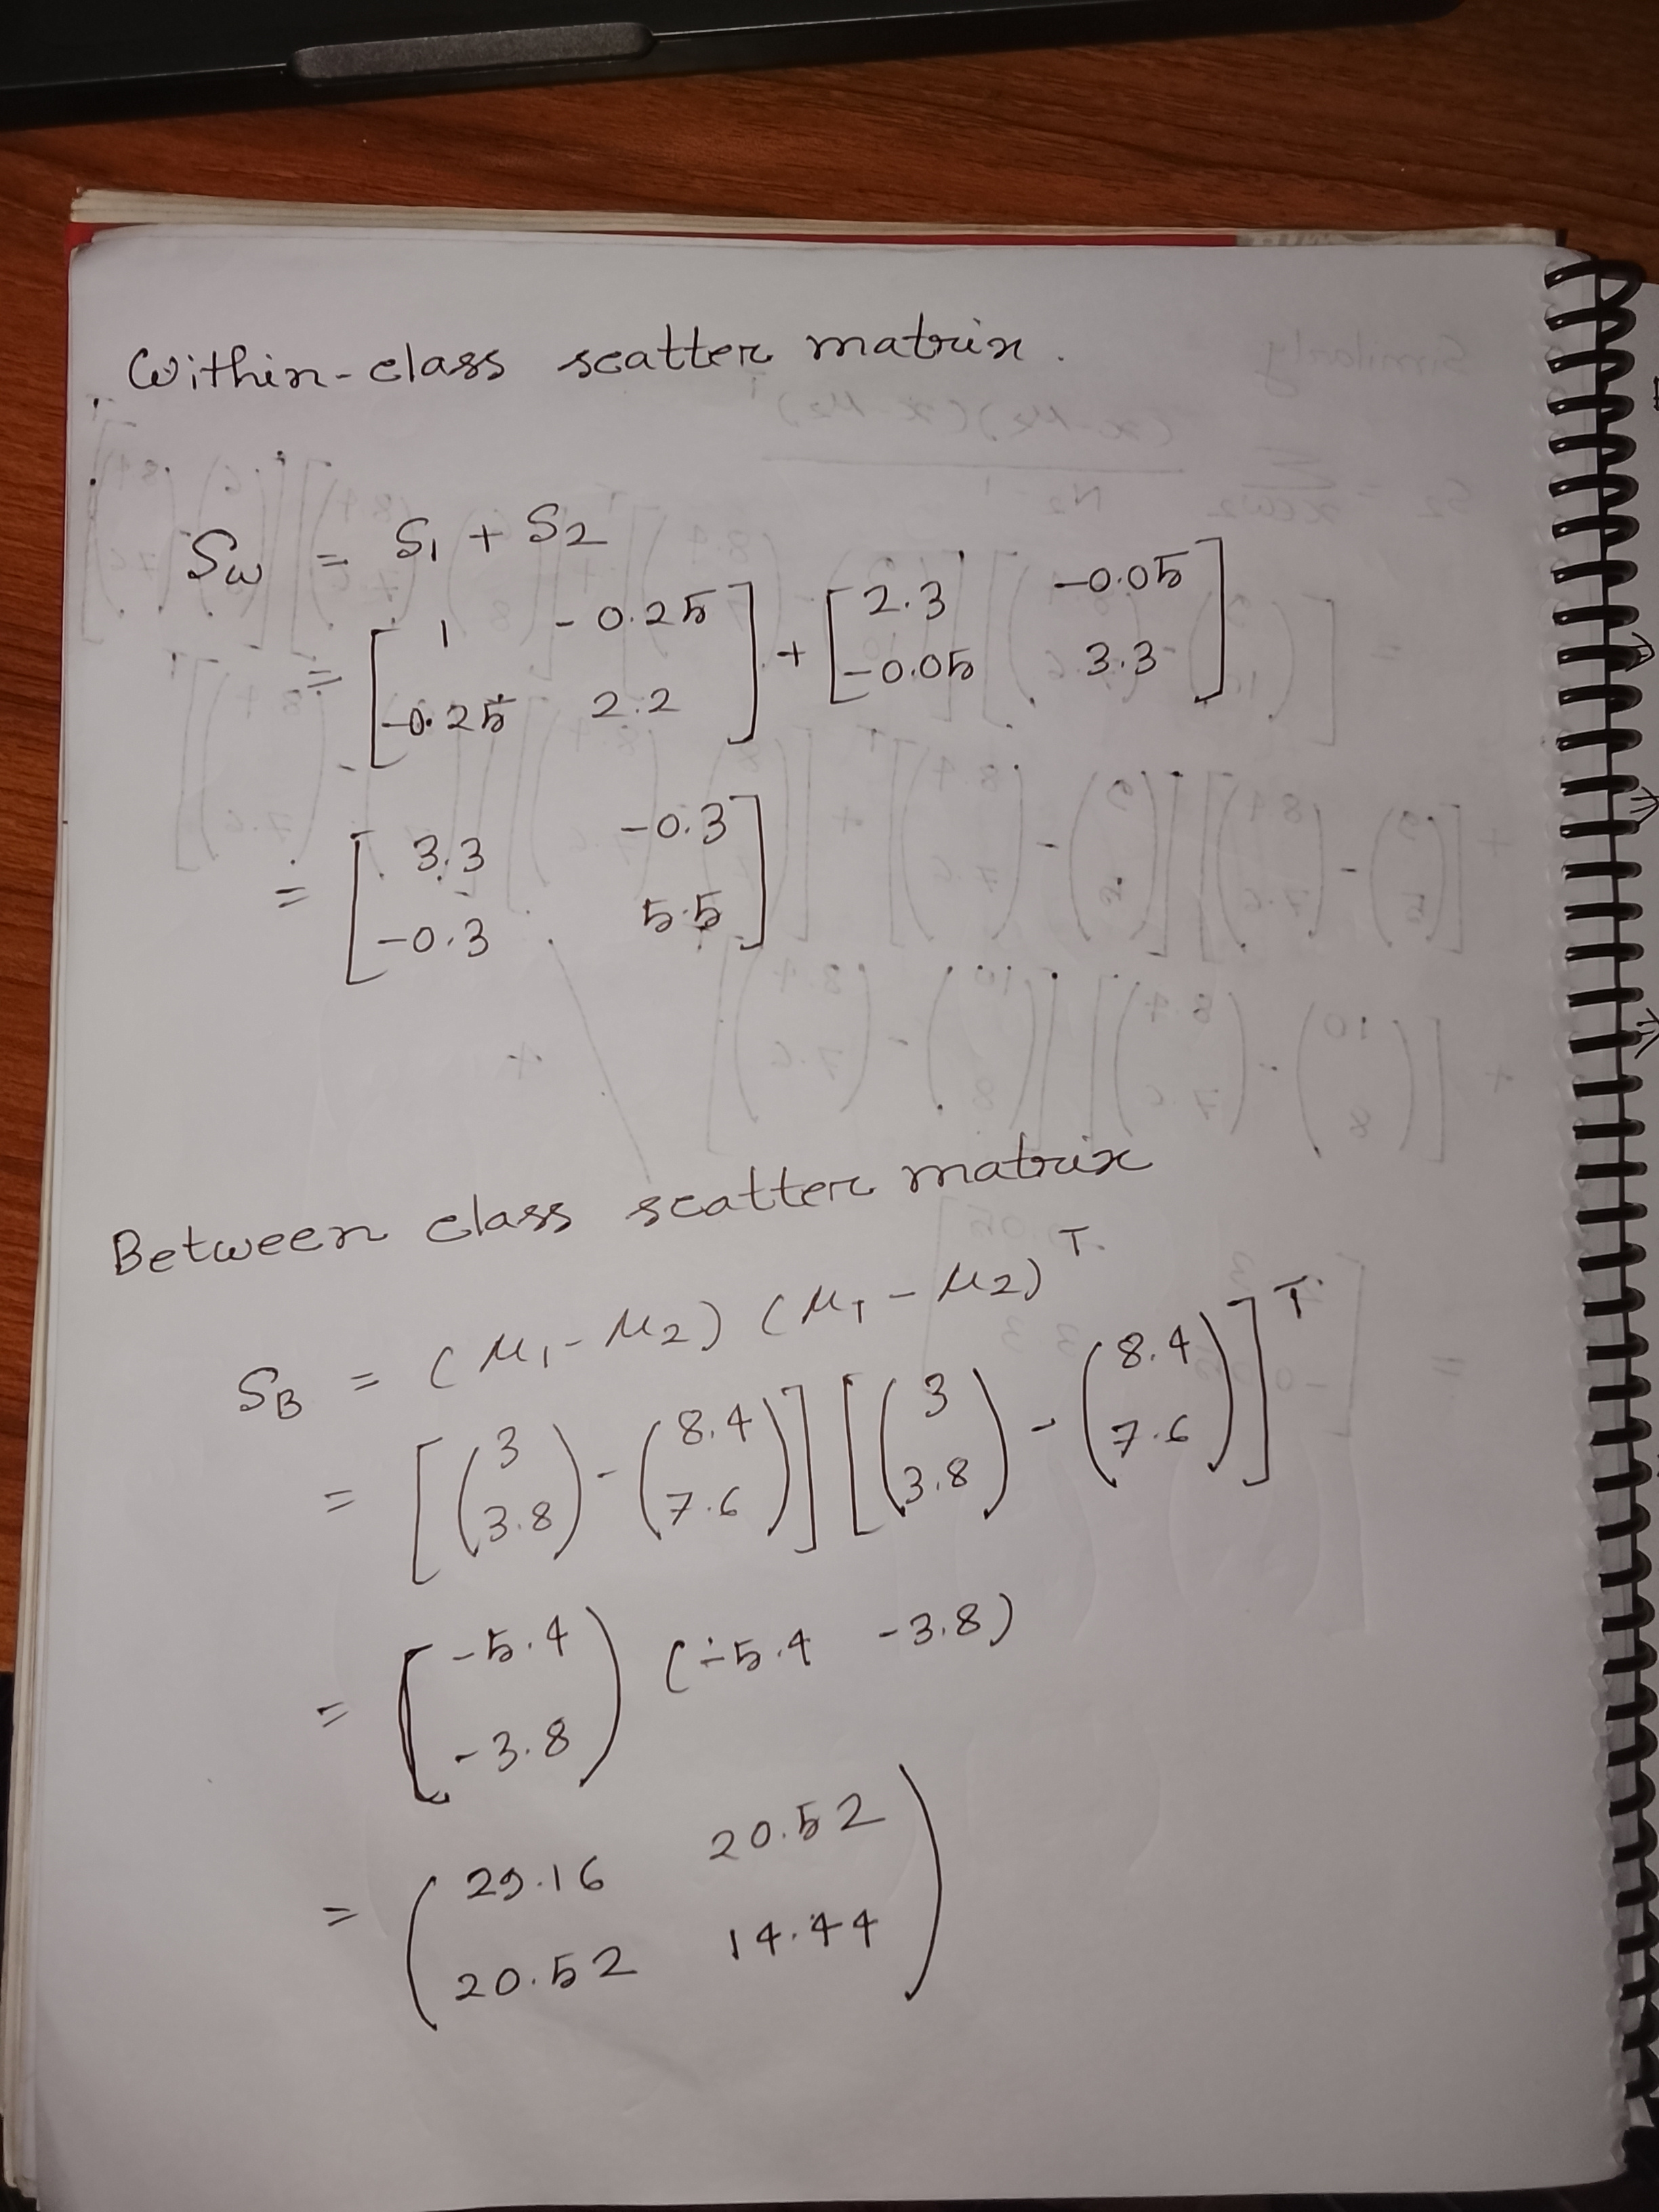 Within-class scatter matrix.
Sw = S1 + S2
= [ 1 -0.25
-0.25 2.2 ] + [ 2.3 -0.05
-0.05 3.3 ]
= [ 3.3 -0.3
-0.3 5.5 ]
Between class scatter matrix
SB = (μ1 - μ2) (μ1 - μ2)^T
= [ ( 3
3.8 ) - ( 8.4
7.6 ) ] [ ( 3
3.8 ) - ( 8.4
7.6 ) ]^T
= ( -5.4
-3.8 ) (-5.4 -3.8)
= ( 29.16 20.52
20.52 14.44 )